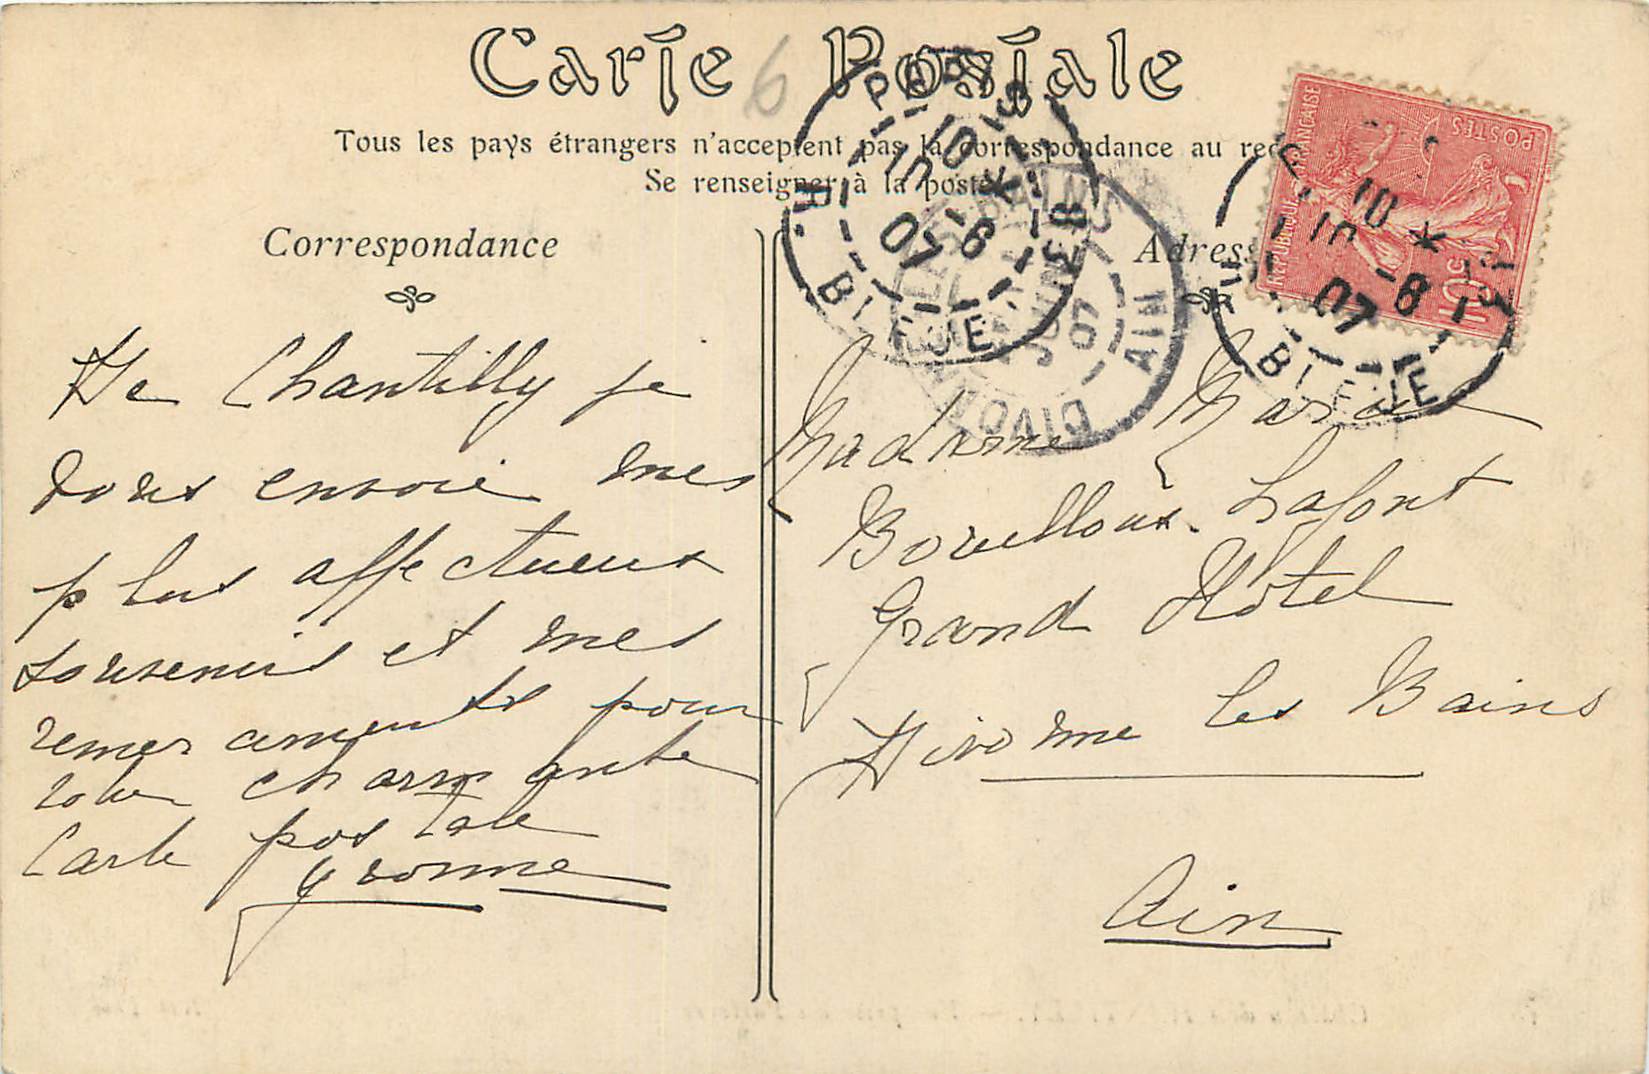 Carte Postale
6
Tous les pays étrangers n'acceptent pas la correspondance au
Se renseigner à la poste
Correspondance
De Chantilly je
vous envoie mes
plus affectueux
souvenirs et mes
remerciements pour
votre charmante
Carte postale
Yvonne
PARIS
R. BLEUE
10
8
07
DIVONNE LES BAINS
AIN
07
REPUBLIQUE FRANÇAISE
POSTES
10c
BLEUE
10
8
07
Adresse
Madame Marcel
Bouilloux-Lafont
Grand Hôtel
Divonne les Bains
Ain